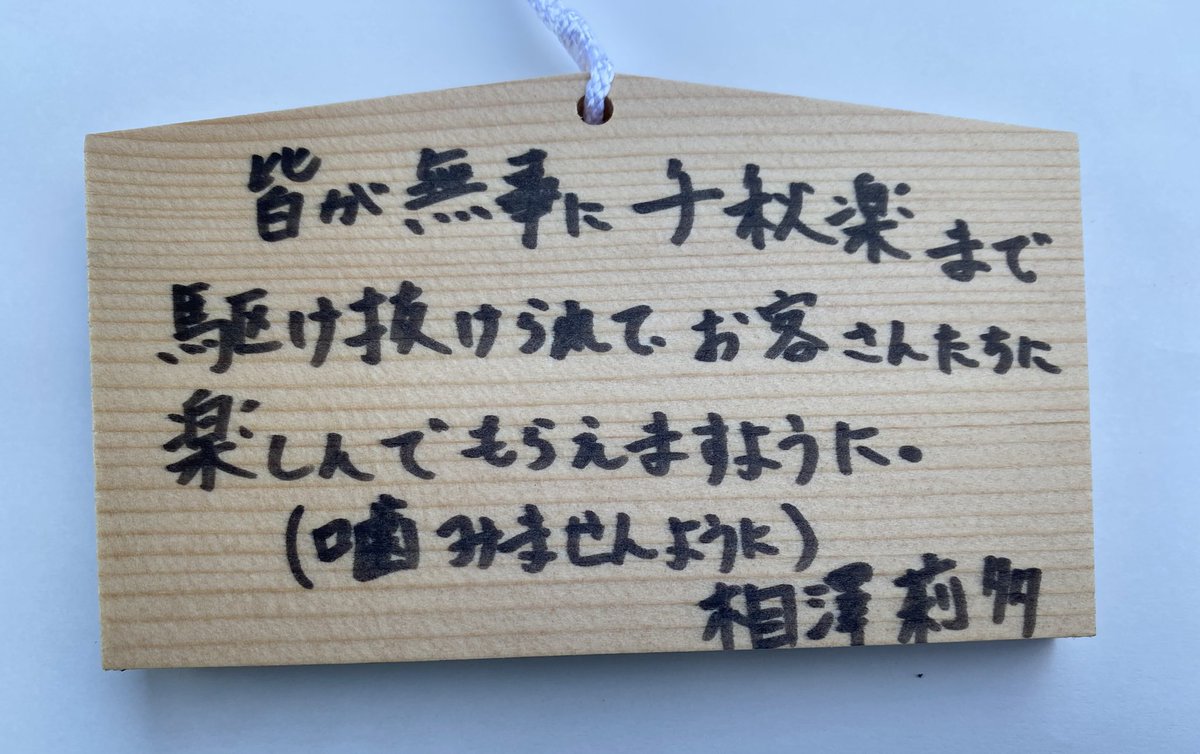 皆が無事に千秋楽まで
駆け抜けられて、お客さんたちに
楽しんでもらえますように。
(噛みませんように)
相澤莉多